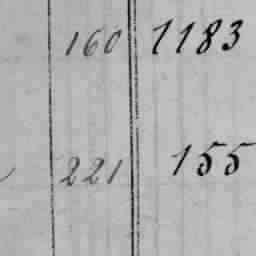 160 1183
221 155